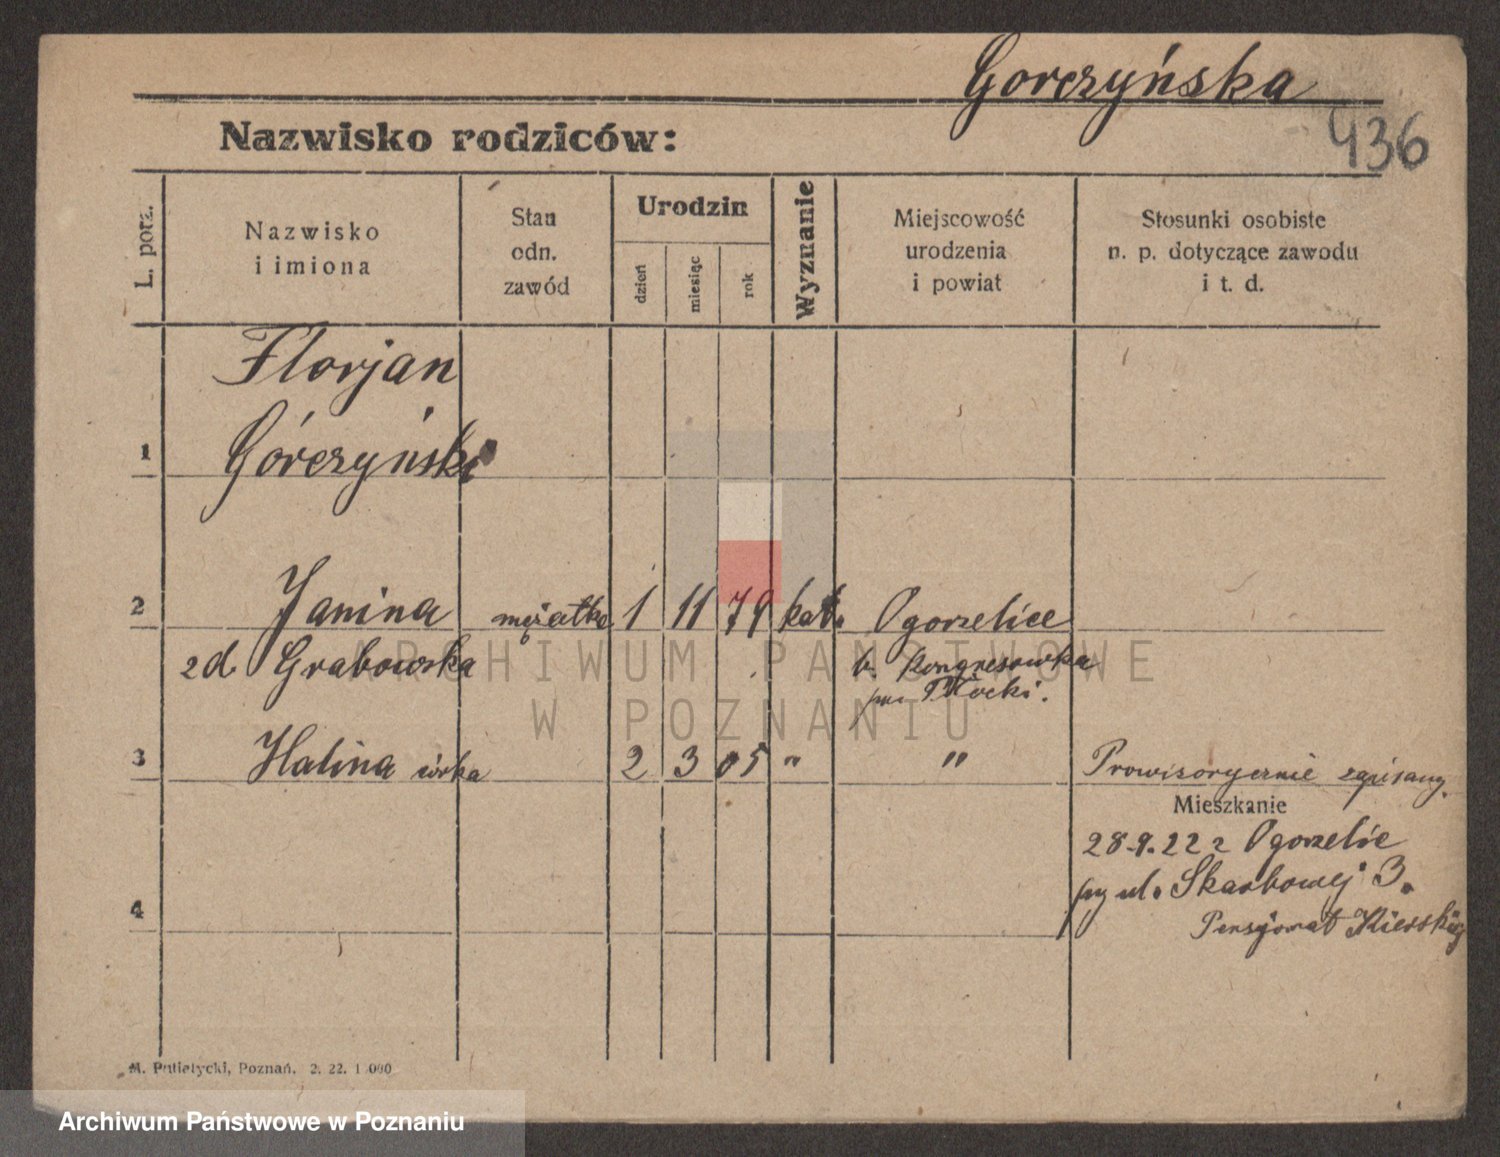 Gorczyńska
436
Nazwisko rodziców:
L. porz.
Nazwisko
i imiona
Stan
odn.
zawód
Urodzin
dzień
miesiąc
rok
Wyznanie
Miejscowość
urodzenia
i powiat
Stosunki osobiste
n. p. dotyczące zawodu
i t. d.
Florjan
1 Górczyński
2 Janina mężatka 1 11 79 kat. Ogorzelice
zd. Grabowska b. kongresowka
pow. Płocki.
3 Halina córka 2 3 05 " " Prowizorycznie zapisany.
Mieszkanie
28.9.22 z Ogorzelic
4 przy ul. Skarbowej 3.
Pensjonat
M. Putiatycki, Poznań. 2. 22. 1.000
ARCHIWUM PAŃSTWOWE
W POZNANIU
Archiwum Państwowe w Poznaniu